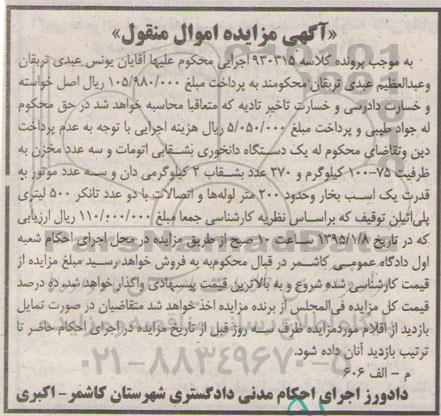 «آگهی مزایده اموال منقول»
به موجب پرونده کلاسه ۹۳۰۳۱۵ اجرایی محکوم علیها آقایان یونس عیدی تربقان
وعبدالعظیم عبدی تربقان محکومند به پرداخت مبلغ ۱۰۵/۹۸۰/۰۰۰ ریال اصل خواسته
و خسارت دادرسی و خسارت تاخیر تادیه که متعاقبا محاسبه خواهد شد در حق محکوم
له جواد طیبی و پرداخت مبلغ ۵/۰۵۰/۰۰۰ ریال هزینه اجرایی با توجه به عدم پرداخت
دین وتقاضای محکوم له یک دستگاه دانخوری بشقابی اتومات و سه عدد مخزن به
ظرفیت ۷۵-۱۰۰ کیلوگرم و ۲۷۰ عدد بشقاب ۲ کیلوگرمی دان و سه عدد موتور به
قدرت یک اسب بخار وحدود ۲۰۰ متر لوله‌ها و اتصالات با دو عدد تانکر ۵۰۰ لیتری
پلی‌اتیلن توقیف که براساس نظریه کارشناسی جمعا مبلغ ۱۱۰/۰۰۰/۰۰۰ ریال ارزیابی
که در تاریخ ۱۳۹۵/۱/۸ ساعت ۱۰ صبح از طریق مزایده در محل اجرای احکام شعبه
اول دادگاه عمومی کاشمر در قبال محکوم‌به به فروش خواهد رسید مبلغ مزایده از
قیمت کارشناسی شده شروع و به بالاترین قیمت پیشنهادی واگذار خواهد شد. ده درصد
قیمت کل مزایده فی‌المجلس از برنده مزایده اخذ خواهد شد متقاضیان در صورت تمایل
بازدید از اقلام موردمزایده ظرف سه روز قبل از تاریخ مزایده در اجرای احکام حاضر تا
ترتیب بازدید آنان داده شود.
م - الف ۶۰۶
دادورز اجرای احکام مدنی دادگستری شهرستان کاشمر - اکبری
۰۲۱-۸۸۳۴۹۶۷۰-۵